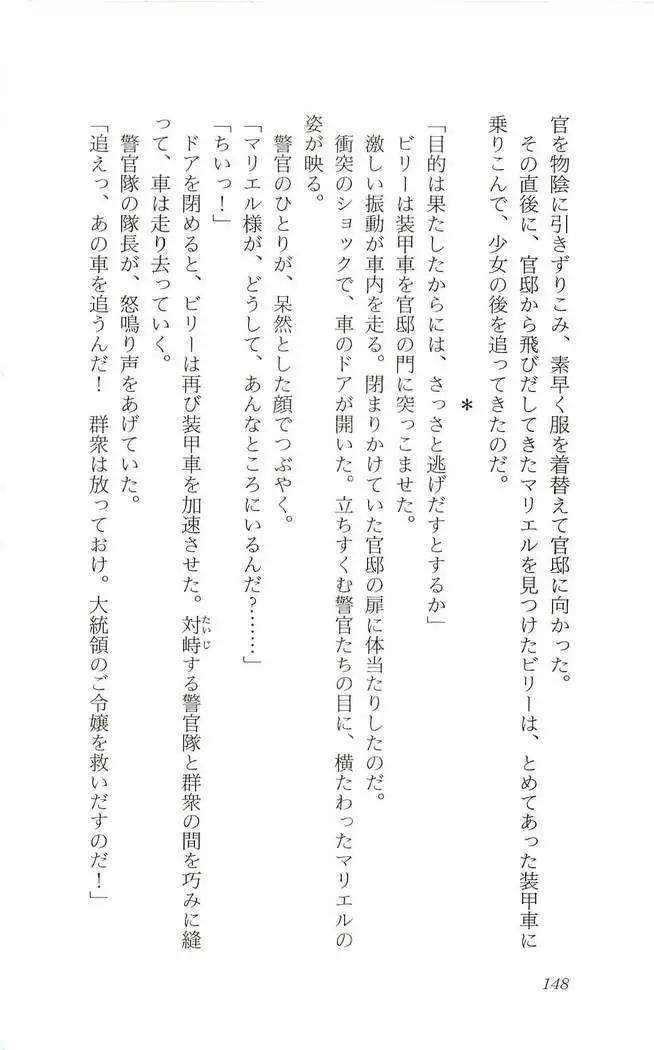 官を物陰に引きずりこみ、素早く服を着替えて官邸に向かった。
　その直後に、官邸から飛びだしてきたマリエルを見つけたビリーは、とめてあった装甲車に
乗りこんで、少女の後を追ってきたのだ。
＊
「目的は果たしたからには、さっさと逃げだすとするか」
　ビリーは装甲車を官邸の門に突っこませた。
　激しい振動が車内を走る。閉まりかけていた官邸の扉に体当たりしたのだ。
　衝突のショックで、車のドアが開いた。立ちすくむ警官たちの目に、横たわったマリエルの
姿が映る。
　警官のひとりが、呆然とした顔でつぶやく。
「マリエル様が、どうして、あんなところにいるんだ？……」
「ちいっ！」
　ドアを閉めると、ビリーは再び装甲車を加速させた。対峙する警官隊と群衆の間を巧みに縫
たいじ
って、車は走り去っていく。
　警官隊の隊長が、怒鳴り声をあげていた。
「追えっ、あの車を追うんだ！　群衆は放っておけ。大統領のご令嬢を救いだすのだ！」
148